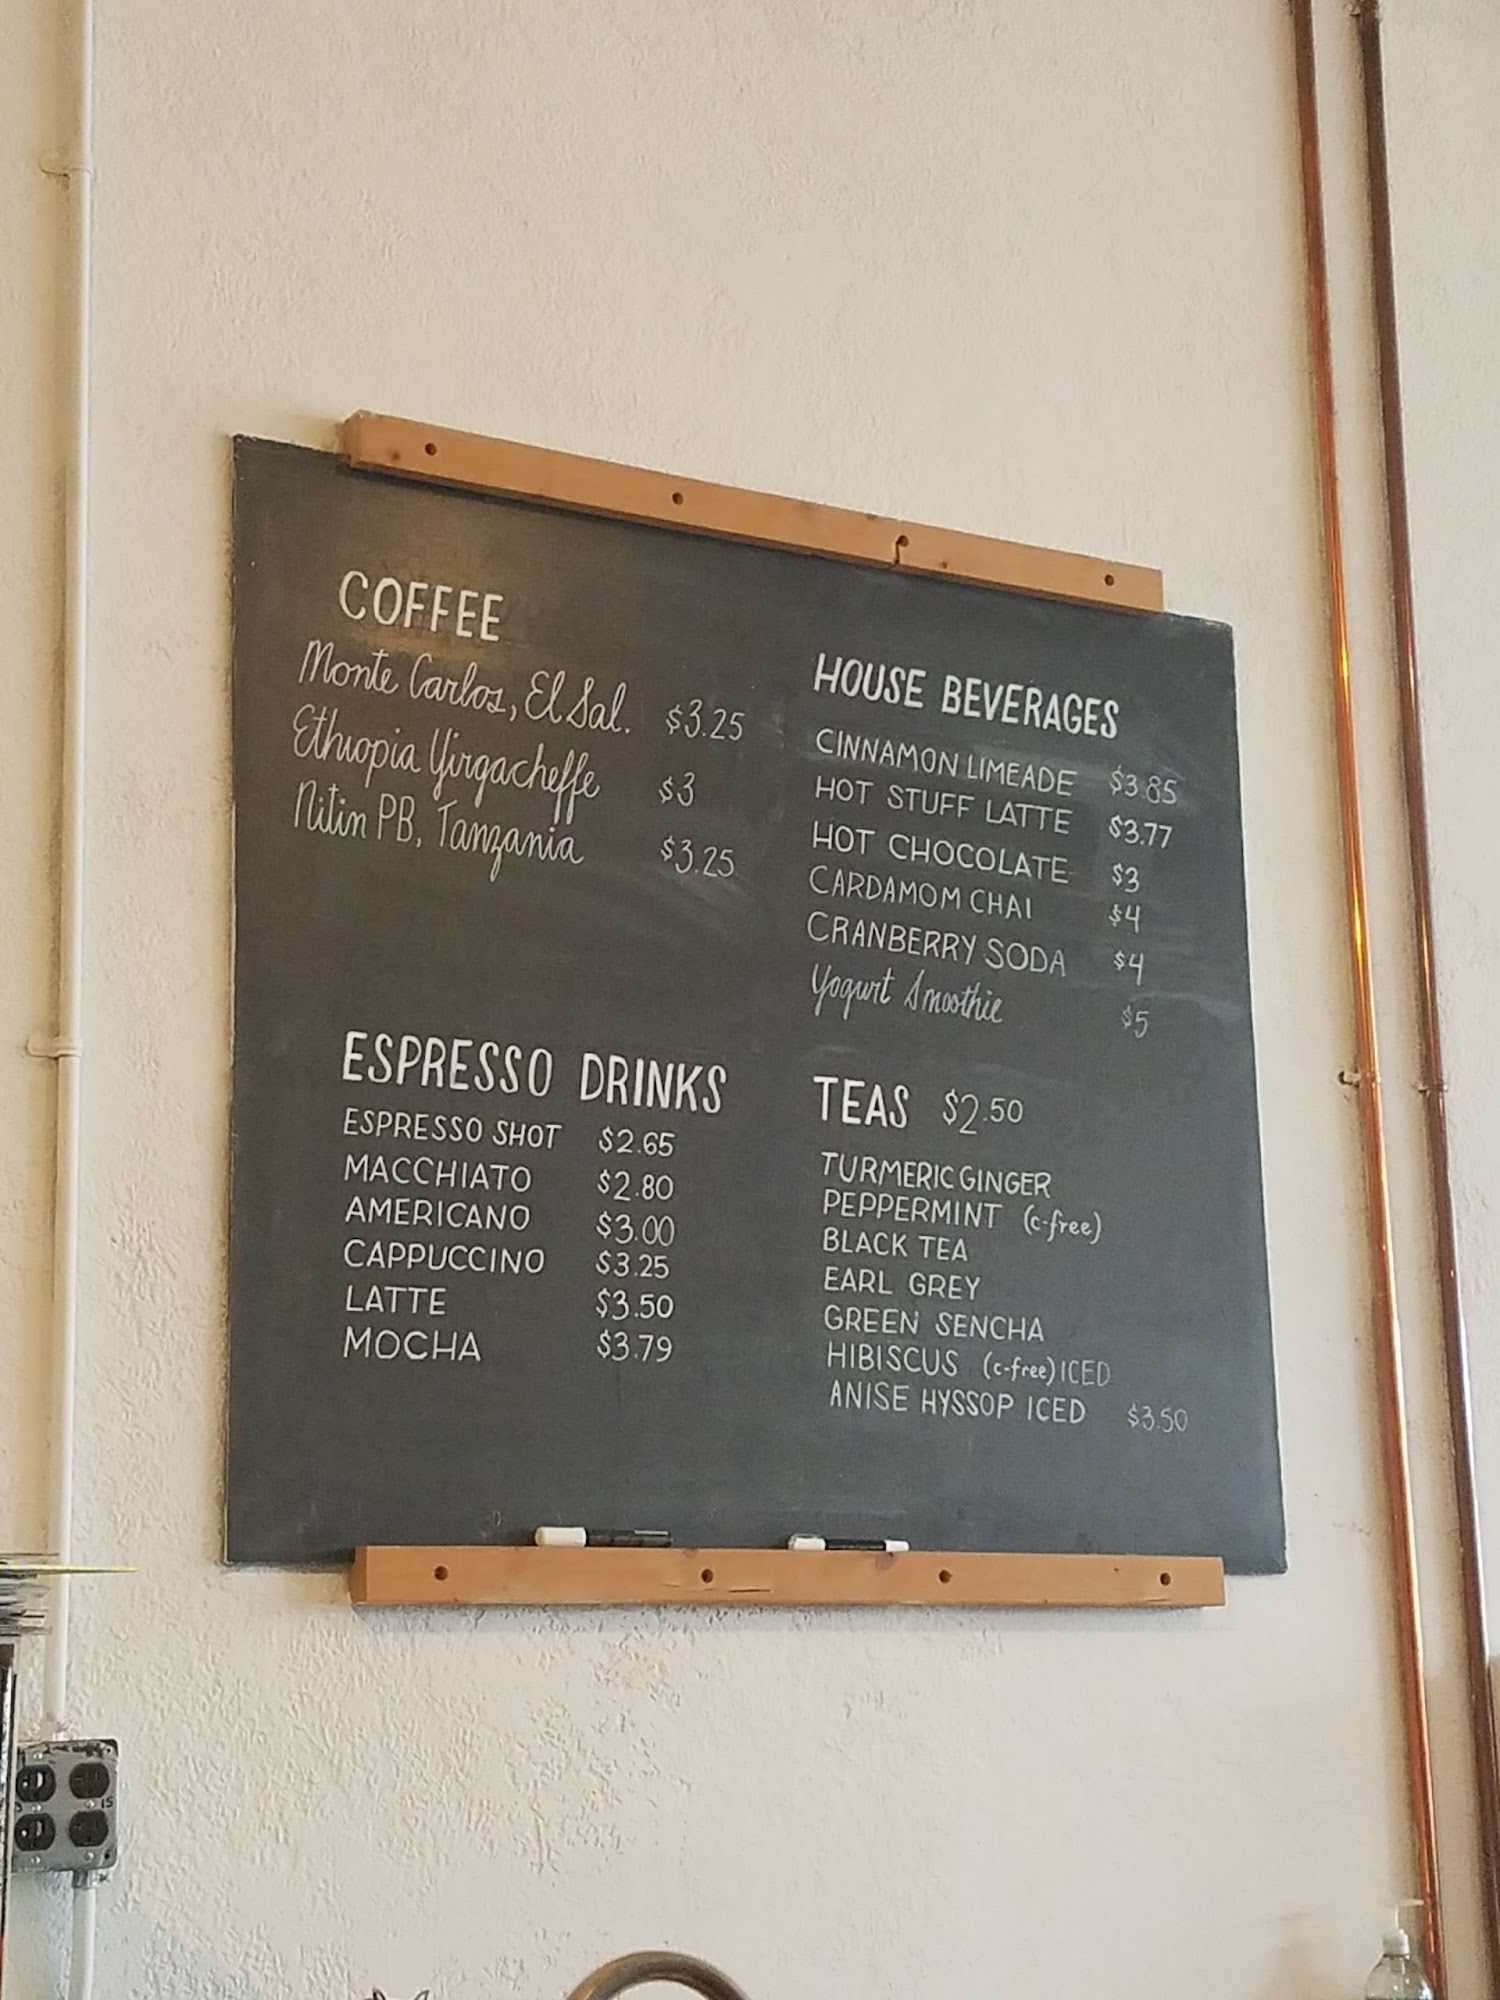 COFFEE
Monte Carlos, El Sal. $3.25
Ethiopia Yirgacheffe $3
Nitin PB, Tanzania $3.25
ESPRESSO DRINKS
ESPRESSO SHOT $2.65
MACCHIATO $2.80
AMERICANO $3.00
CAPPUCCINO $3.25
LATTE $3.50
MOCHA $3.79
HOUSE BEVERAGES
CINNAMON LIMEADE $3.85
HOT STUFF LATTE $3.77
HOT CHOCOLATE $3
CARDAMOM CHAI $4
CRANBERRY SODA $4
Yogurt Smoothie $5
TEAS $2.50
TURMERIC GINGER
PEPPERMINT (c-free)
BLACK TEA
EARL GREY
GREEN SENCHA
HIBISCUS (c-free) ICED
ANISE HYSSOP ICED $3.50
15